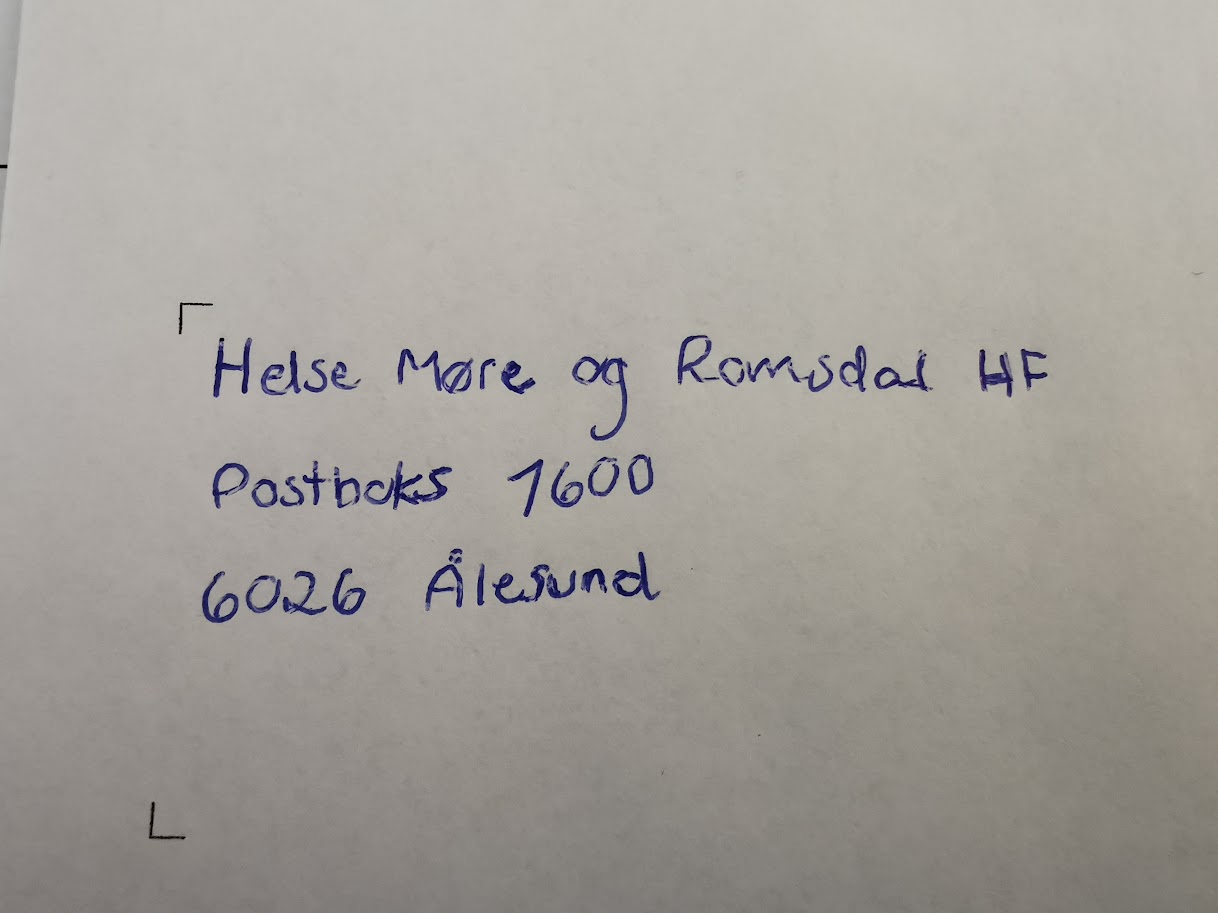 Helse Møre og Romsdal HF
Postboks 1600
6026 Ålesund